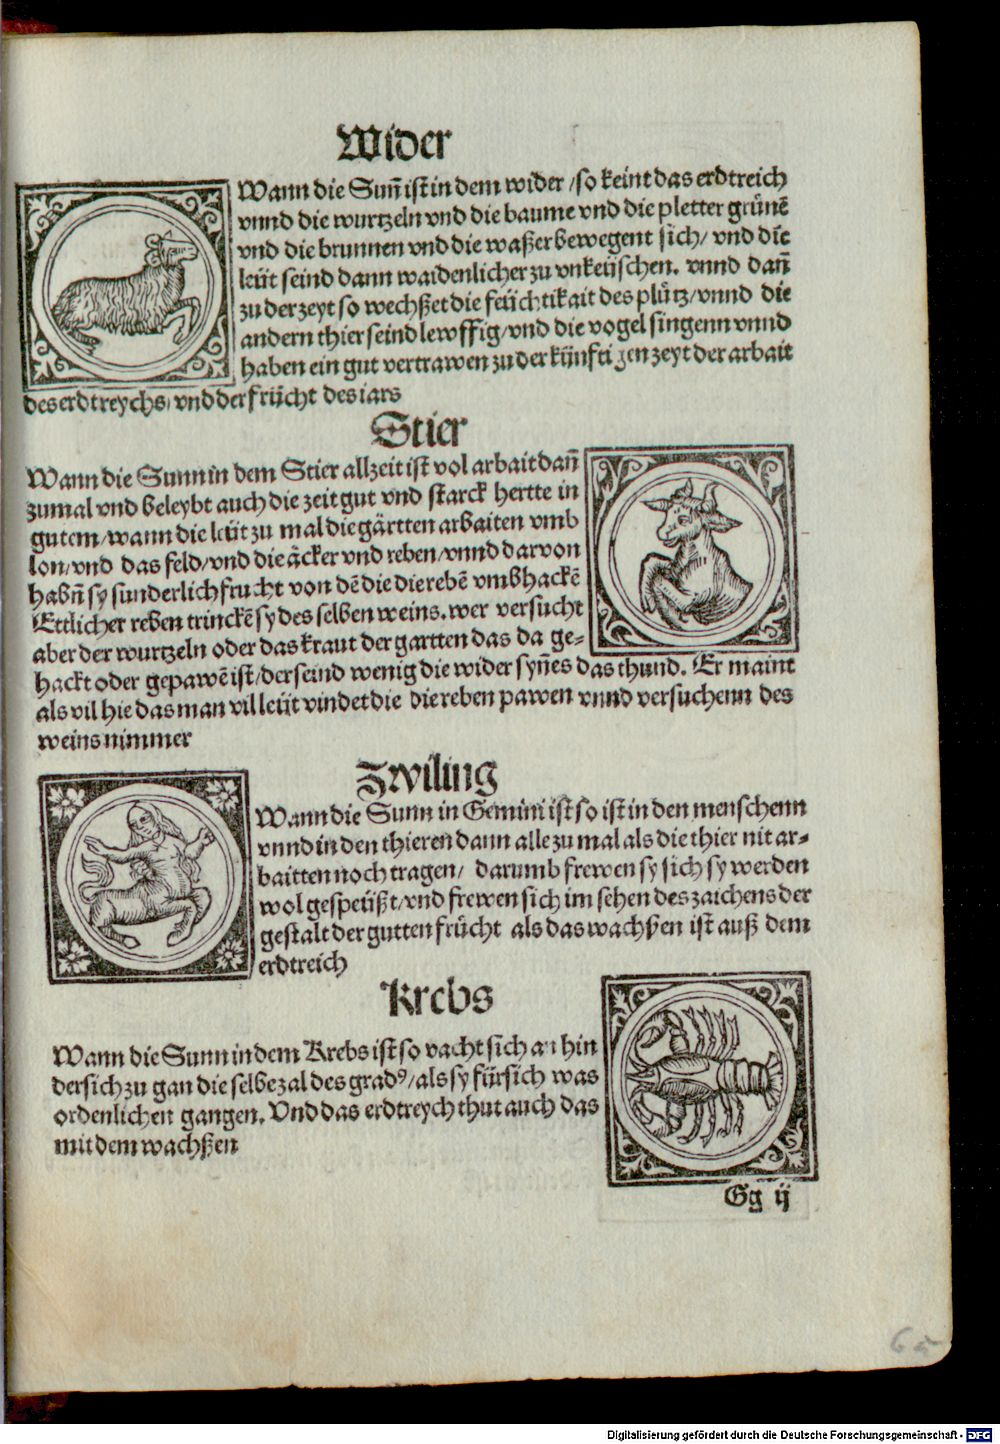 Wider
Wann die Sun̄ ist in dem wider /so keint das erdtreich
vnnd die wurtzeln vnd die baume vnd die pletter grünē
vnd die brunnen vnd die waßer bewegent sich/ vnd die
leüt seind dann waidenlicher zu vnkeüschen. vnnd dan̄
zu der zeyt so wechßet die feüchtikait des plůtz/vnnd die
andern thier seind lewffig/vnd die vogel singenn vnnd
haben ein gut vertrawen zu der künftigen zeyt der arbait
des erdtreychs/ vnd der frücht des iars
Stier
Wann die Sunn in dem Stier allzeit ist vol arbait dan̄
zumal vnd beleybt auch die zeit gut vnd starck hertte in
gutem/wann die leüt zu mal die gärtten arbaiten vmb
lon/vnd das feld/vnd die äcker vnd reben/vnnd darvon
habn̄ sy sunderlich frucht von dē die die rebē vmbhackē
Ettlicher reben trinckē sy des selben weins. wer versucht
aber der wurtzeln oder das kraut der gartten das da ge-
hackt oder gepawē ist/der seind wenig die wider syn̄es das thund. Er maint
als vil hie das man vil leüt vindet die die reben pawen vnnd versuchenn des
weins nimmer
Zwiling
Wann die Sunn in Gemini ist so ist in den menschenn
vnnd in den thieren dann alle zu mal als die thier nit ar-
baitten noch tragen/ darumb frewen sy sich sy werden
wol gespeüßt/vnd frewen sich im sehen des zaichens der
gestalt der gutten frücht als das wachßen ist auß dem
erdtreich
Krebs
Wann die Sunn in dem Krebs ist so vacht sich an hin
dersich zu gan die selbe zal des gradꝰ/als sy fürsich was
ordenlichen gangen. Vnd das erdtreych thut auch das
mit dem wachßen
Gg ij
65
Digitalisierung gefördert durch die Deutsche Forschungsgemeinschaft - DFG